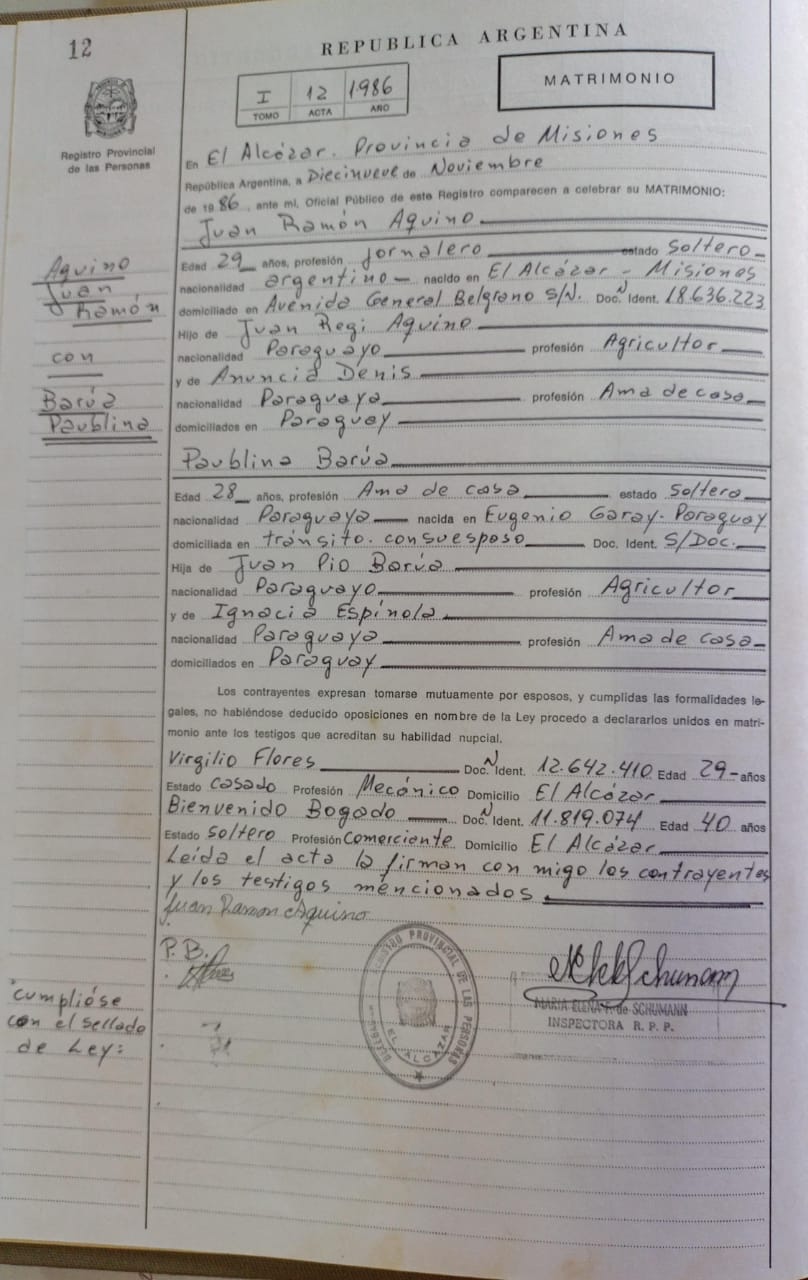 12
REPUBLICA ARGENTINA
I 12 1986
TOMO ACTA AÑO
MATRIMONIO
Registro Provincial
de las Personas
En El Alcázar. Provincia de Misiones
República Argentina, a Diecinueve de Noviembre
de 1986, ante mi, Oficial Público de este Registro comparecen a celebrar su MATRIMONIO:
Juan Ramón Aquino
Edad 29 años, profesión Jornalero estado Soltero
nacionalidad argentino nacido en El Alcázar - Misiones
domiciliado en Avenida General Belgrano S/N. Doc. N Ident. 18.636.223
Hijo de Juan Regi Aquino
nacionalidad Paraguayo profesión Agricultor
y de Anuncia Denis
nacionalidad Paraguaya profesión Ama de casa
domiciliados en Paraguay
Aquino
Juan
Ramón
con
Barúa
Paublina
Paublina Barúa
Edad 28 años, profesión Ama de casa estado Soltera
nacionalidad Paraguaya nacida en Eugenio Garay. Paraguay
domiciliada en tránsito. con su esposo Doc. Ident. S/Doc.
Hija de Juan Pio Barúa
nacionalidad Paraguayo profesión Agricultor
y de Ignacia Espínola
nacionalidad Paraguaya profesión Ama de casa
domiciliados en Paraguay
Los contrayentes expresan tomarse mutuamente por esposos, y cumplidas las formalidades le-
gales, no habiéndose deducido oposiciones en nombre de la Ley procedo a declararlos unidos en matri-
monio ante los testigos que acreditan su habilidad nupcial.
Virgilio Flores Doc. N Ident. 12.642.410 Edad 29 años
Estado Casado Profesión Mecánico Domicilio El Alcázar
Bienvenido Bogado Doc. N Ident. 11.819.074 Edad 40 años
Estado Soltero Profesión Comerciente Domicilio El Alcázar
Leída el acta la firman con migo los contrayentes
y los testigos mencionados
Juan Ramon Aquino
P. B.
REGISTRO PROVINCIAL DE LAS PERSONAS
EL ALCAZAR
MARIA ELENA de SCHUMANN
INSPECTORA R. P. P.
cumplióse
con el sellado
de Ley: